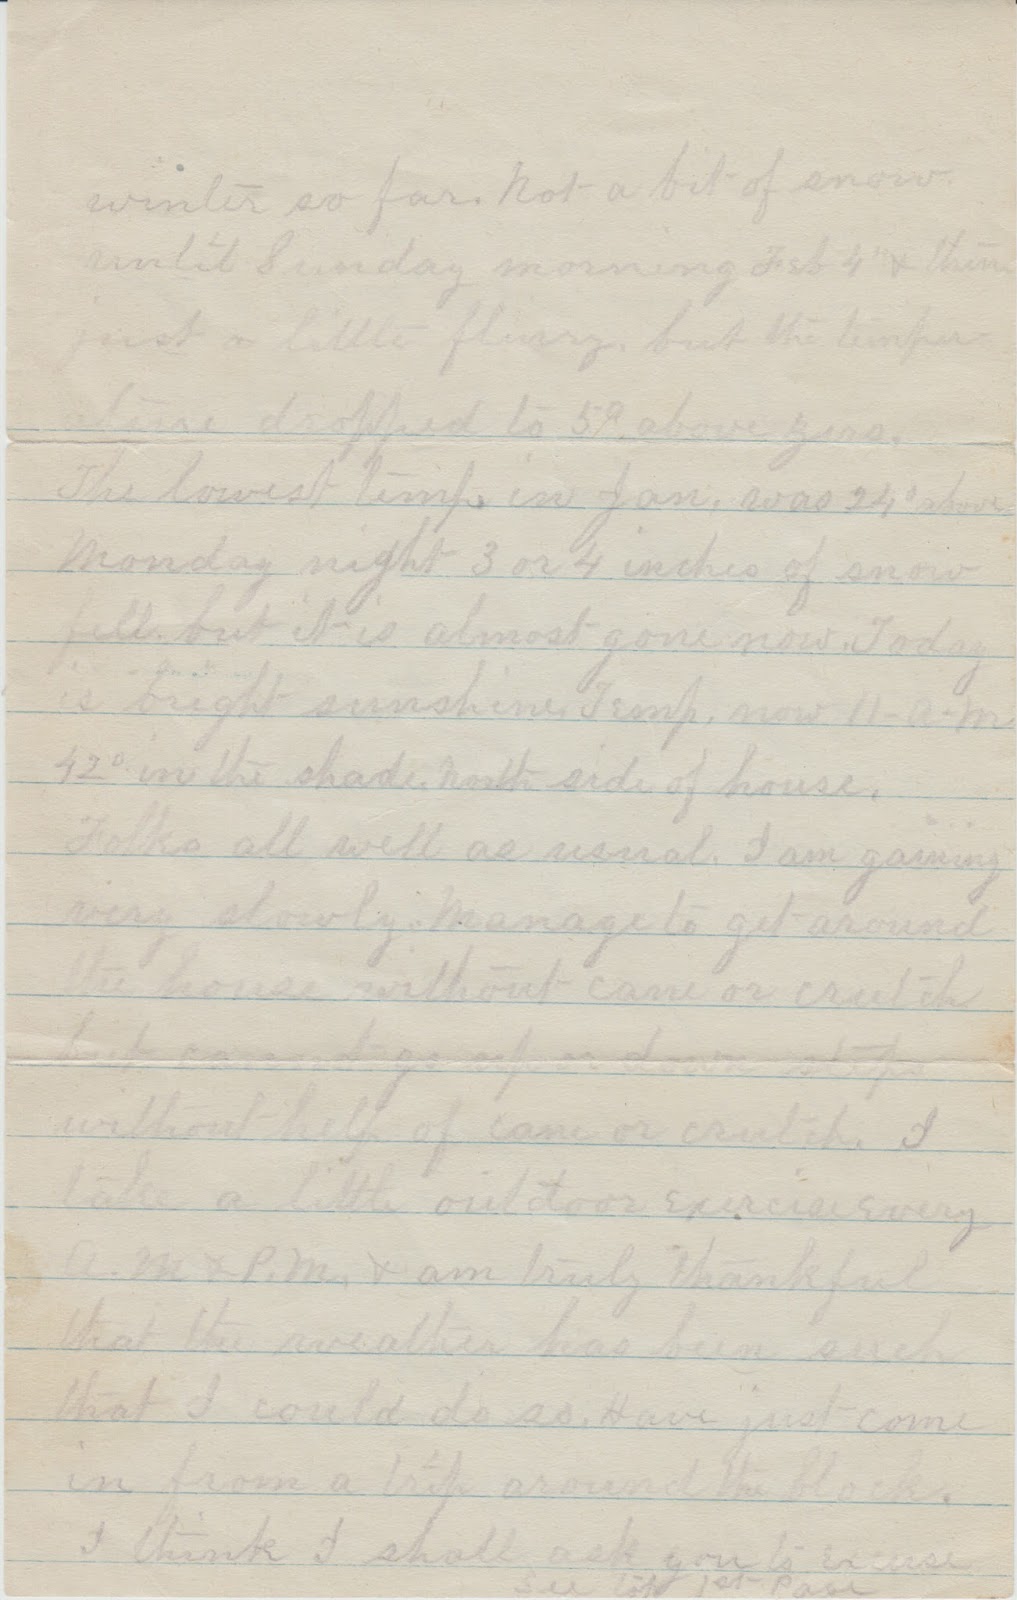 winter so far. Not a bit of snow
until Sunday morning Feb 4" & then
just a little flurry. but the temper-
ature dropped to 5° above zero.
The lowest temp. in Jan. was 24° above
Monday night 3 or 4 inches of snow
fell. but it is almost gone now. Today
is bright sunshine. Temp. now 11-A-M
42° in the shade. North side of house.
Folks all well as usual. I am gaining
very slowly. Manage to get around
the house without cane or crutch
but cannot go up or down steps
without help of cane or crutch. I
take a little outdoor exercise every
A.M & P.M. & am truly thankful
that the weather has been such
that I could do so. Have just come
in from a trip around the block.
I think I shall ask you to excuse
See top 1st Page